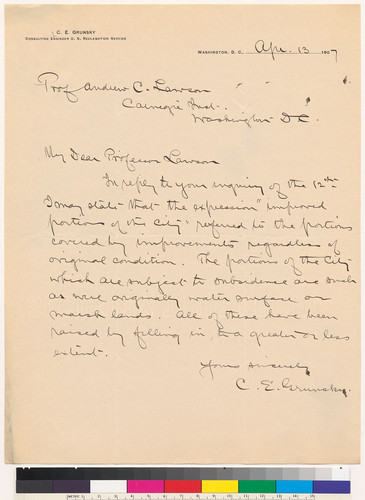 C. E. GRUNSKY
CONSULTING ENGINEER U. S. RECLAMATION SERVICE
WASHINGTON, D. C. Apr. 13 1907
Prof Andrew C. Lawson
Carnegie Inst.
Washington D C.
My Dear Professor Lawson
In reply to your inquiry of the 12th
I may state that the expression "improved
portions of the City" referred to the portions
covered by improvements regardless of
original condition. The portions of the City
which are subject to subsidence are such
as were originally water surface or
marsh lands. All of these have been
raised by filling in, to a greater or less
extent.
Yours sincerely
C. E. Grunsky.